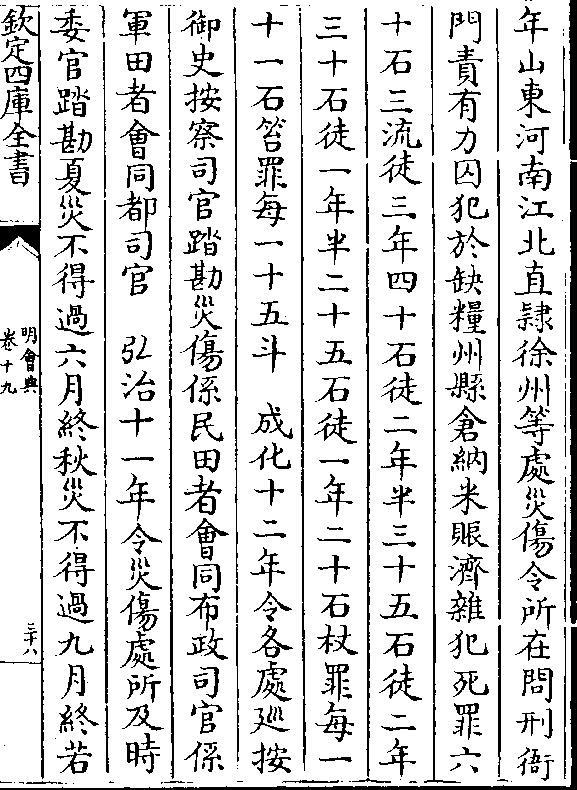 年山東河南江北直隷徐州等處災傷令所在問刑衙
門責有力囚犯於缺糧州縣倉納米賑濟雜犯死罪六
十石三流徒三年四十石徒二年半三十五石徒二年
三十石徒一年半二十五石徒一年二十石杖罪每一
十一石笞罪每一十五斗　成化十二年令各處廵按
御史按察司官踏勘災傷係民田者會同布政司官係
軍田者會同都司官　弘治十一年令災傷處所及時
委官踏勘夏災不得過六月終秋災不得過九月終若
欽定四庫全書
明會典
卷十九
三十八